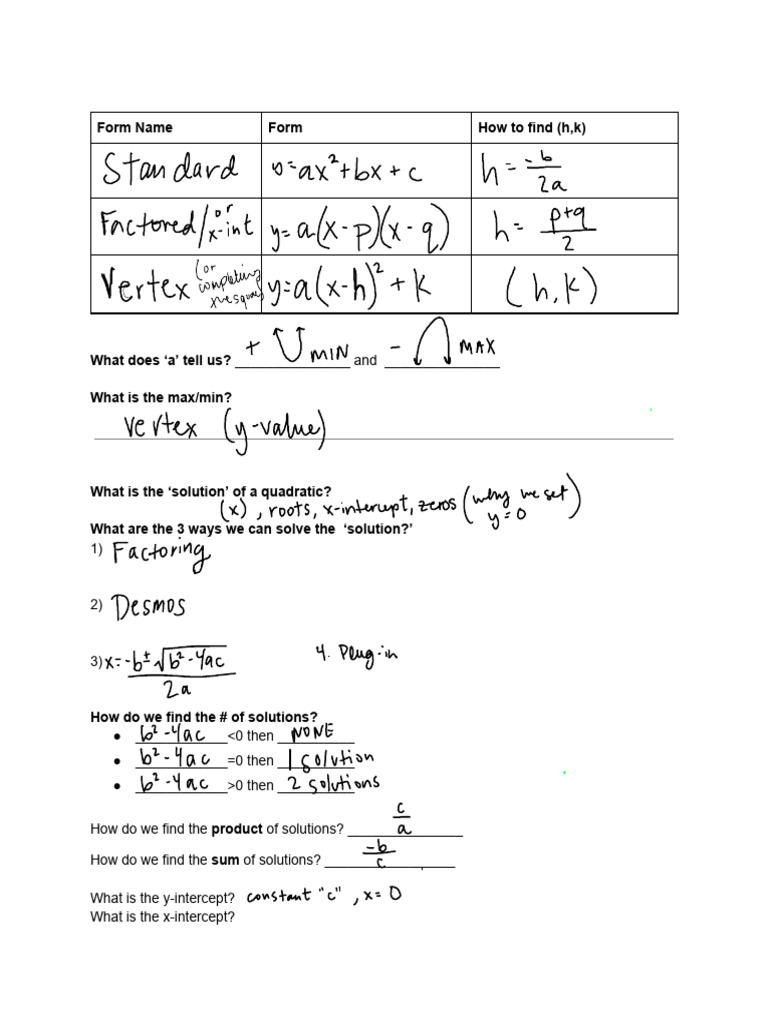 Form Name Form How to find (h,k)
Standard y=ax²+bx+c h=-b/2a
Factored/or x-int y=a(x-p)(x-q) h=p+q/2
Vertex (or completing the square) y=a(x-h)²+k (h,k)
What does ‘a’ tell us? + MIN and - MAX
What is the max/min?
vertex (y-value)
What is the ‘solution’ of a quadratic?
(x), roots, x-intercept, zeros (why we set y=0)
What are the 3 ways we can solve the ‘solution?’
1) Factoring
2) Desmos
3) x=-b±√b²-4ac/2a 4. Plug-in
How do we find the # of solutions?
• b²-4ac <0 then NONE
• b²-4ac =0 then 1 solution
• b²-4ac >0 then 2 solutions
How do we find the product of solutions? c/a
How do we find the sum of solutions? -b/c
What is the y-intercept? constant "c", x=0
What is the x-intercept?